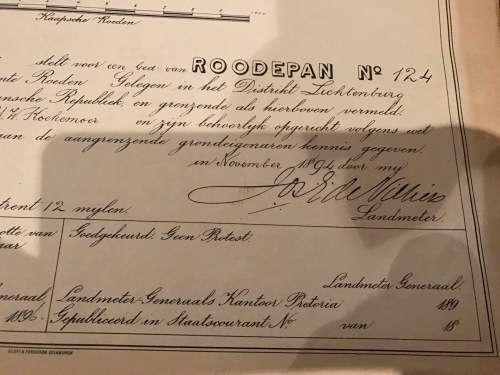 Kaapsche Roeden
stelt voor een ged van ROODEPAN No 124
nte Roeden Gelegen in het Distrikt Lichtenburg
ensche Republiek, en grenzende als hierboven vermeld.
en zijn behoorlijk opgericht volgens wet
aan de aangrenzende grondeigenaren kennis gegeven.
in November 1894 door mij
Jos E. de Villiers
Landmeter.
trent 12 mylen.
otte van
aar
Goedgekeurd. Geen Protest.
Landmeter Generaal
neraal,
Landmeter-Generaals Kantoor Pretoria 189
189
Gepubliceerd in Staatscourant No van 18